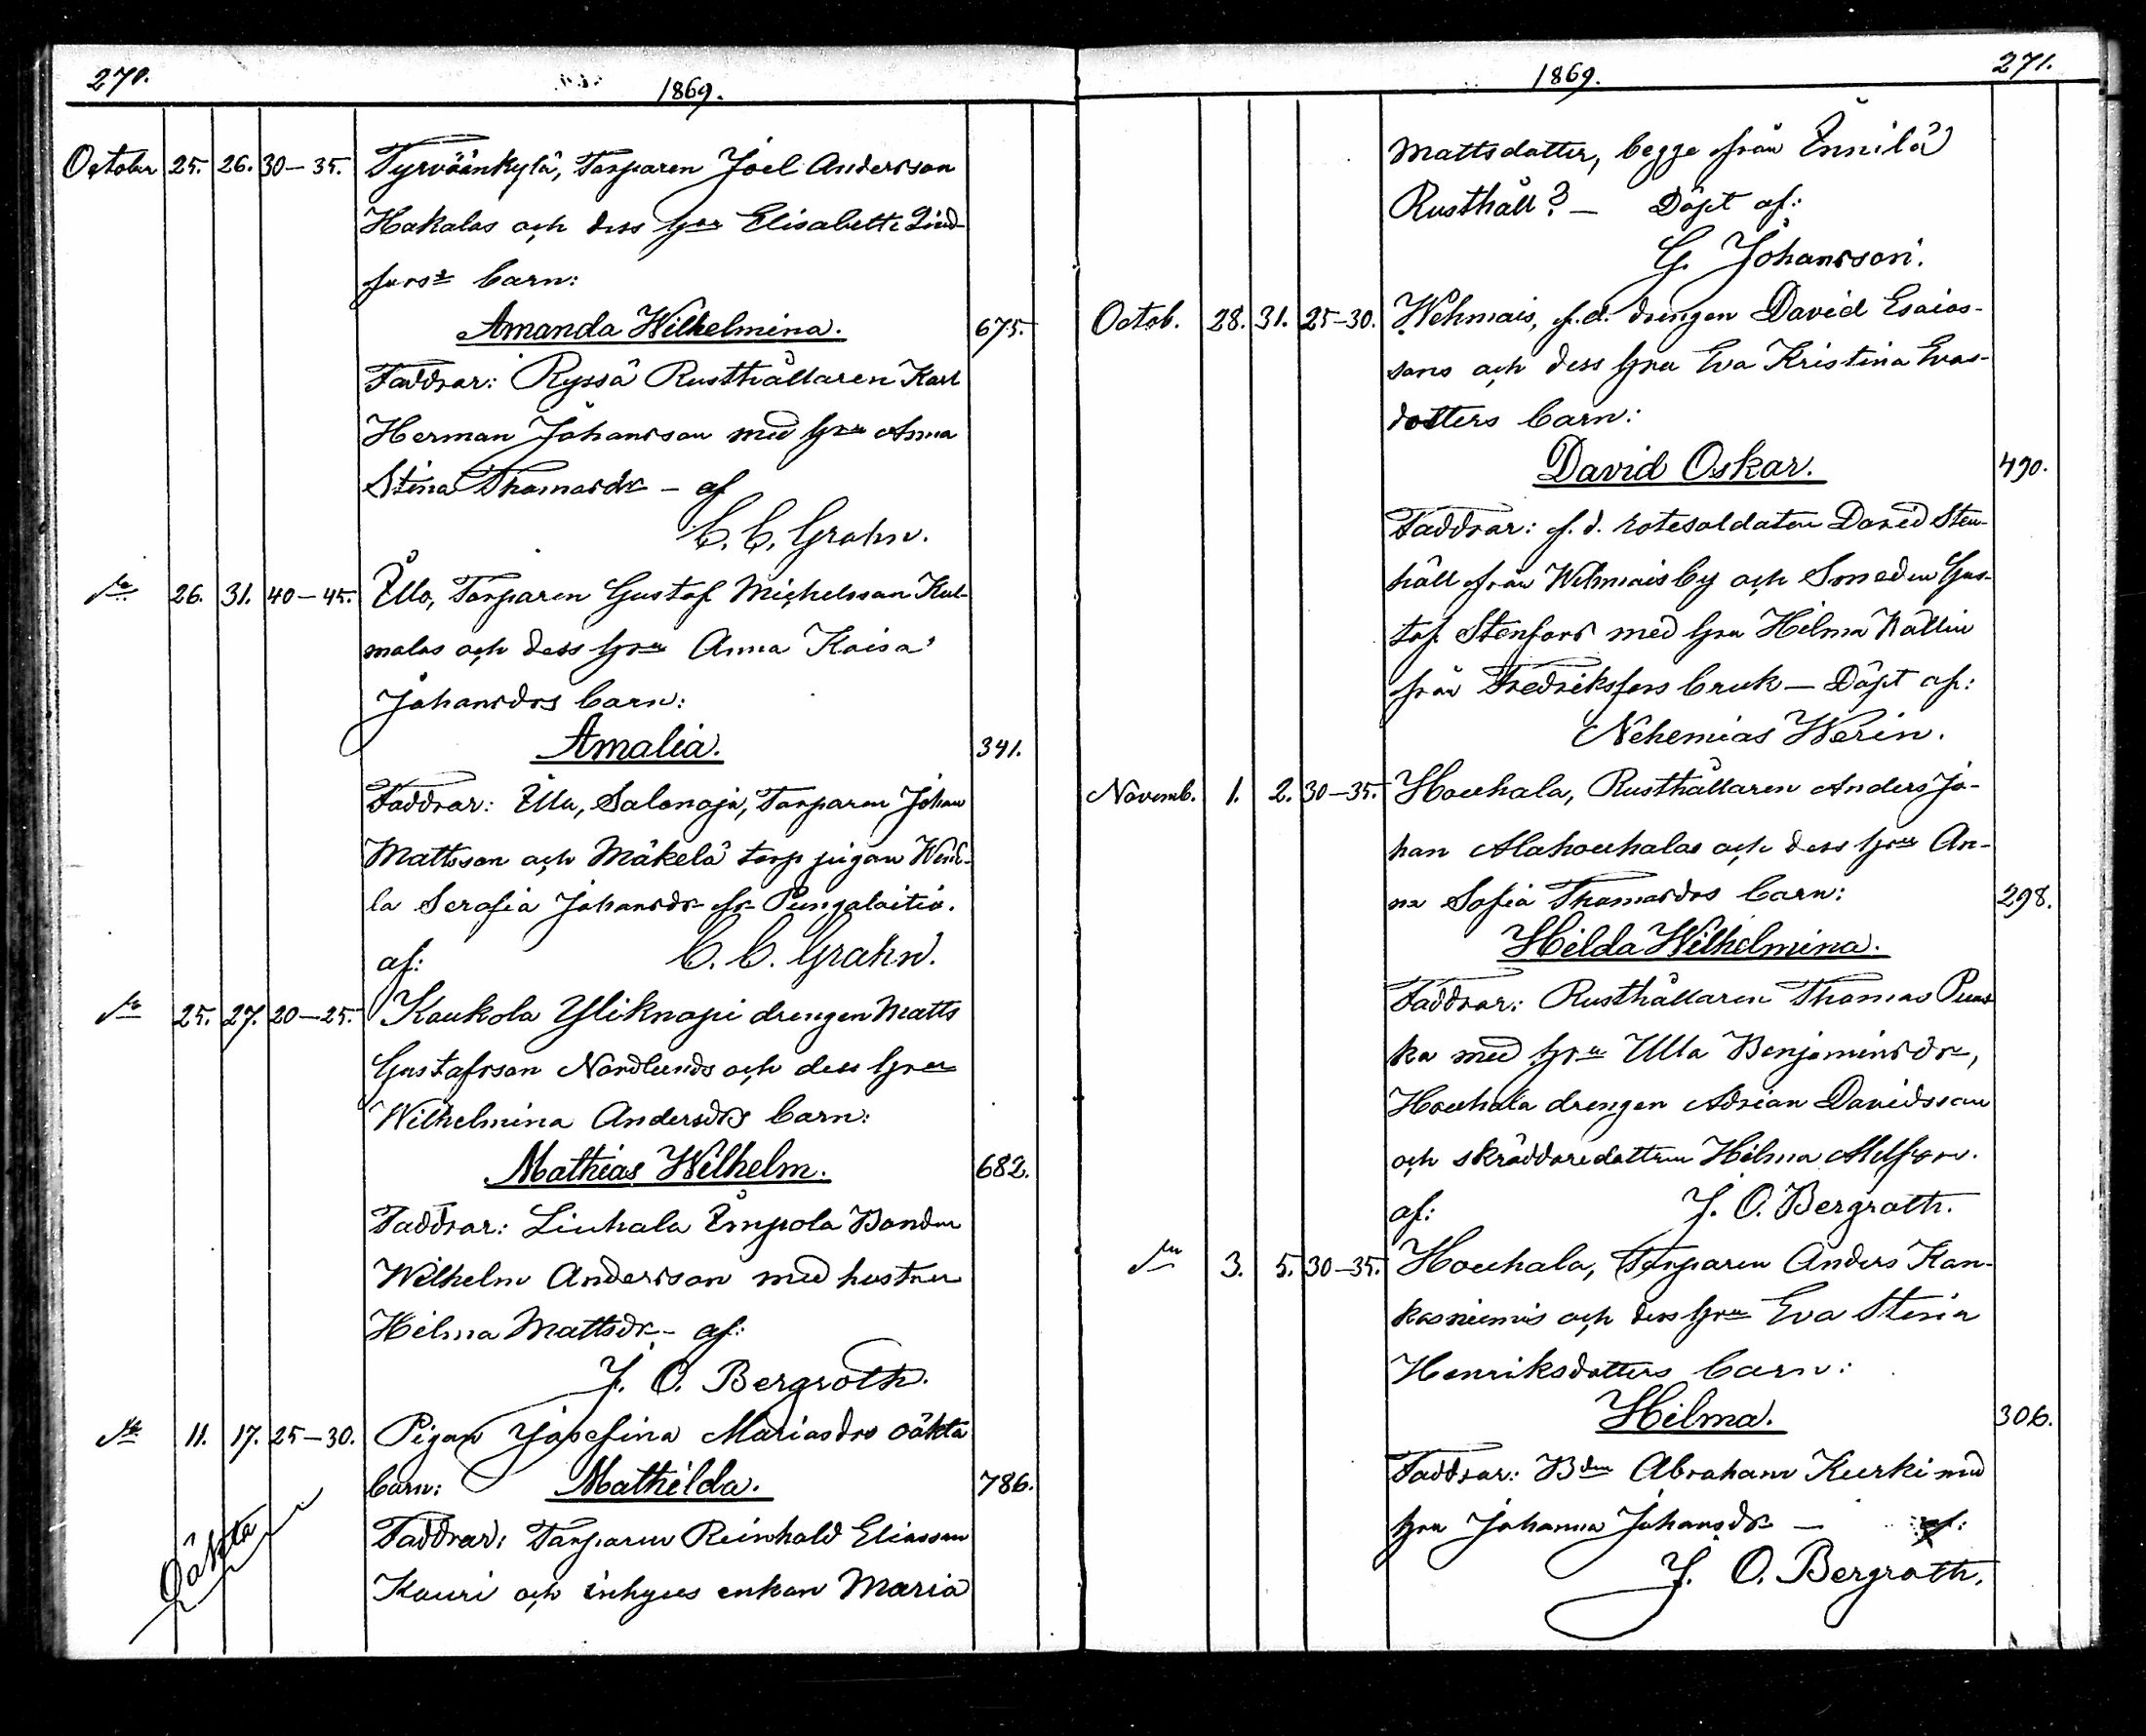 270.
1869.
October 25. 26. 30–35. Tyrväänkylä, Torparen Joel Andersson
Hakalas och dess hru Elisabeth Lind-
fors's barn:
Amanda Wilhelmina. 675.
Faddrar: Ryssä Rusthållaren Karl
Herman Johansson med hru Anna
Stina Thomasdr – af
C. C. Grahn.
do 26. 31. 40–45. Ullo, Torparen Gustaf Michelsson Kul-
malas och dess hru Anna Kaisa
Johansdrs barn:
Amalia. 341.
Faddrar: Salonoja, Torparen Johan
Mattsson och Mäkelä torp pigan Wend-
la Serafia Johansdr fr Pungalaitio.
af: C. C. Grahn.
do 25. 27. 20–25. Kaukola Yliknapi drengen Matts
Gustafsson Nordlunds och dess hru
Wilhelmina Andersdrs barn:
Mathias Wilhelm. 682.
Faddrar: Liuhala Empola Bonden
Wilhelm Andersson med hustru
Hilma Mattsdr – af:
J. O. Bergroth.
do 11. 17. 25–30. Pigan Josefina Mariasdrs oäkta
barn: Mathilda. 786.
Oäkta
Faddrar: Torparen Reinhold Eliasson
Kauri och inhyses enkan Maria
1869.
271.
Mattsdotter, begge från Ennilä
Rusthåll? – Döpt af:
G. Johansson.
Octob. 28. 31. 25–30. Wehmais, f.d. drengen David Esaias-
sons och dess hru Eva Kristina Evas-
dotters barn:
David Oskar. 490.
Faddrar: f. d. rotesoldaten David Sten-
häll från Wehmais by och Smeden Gus-
taf Stenfors med hru Hilma Wallin
från Fredriksfors bruk – Döpt af:
Nehemias Werin.
Novemb. 1. 2. 30–35. Houhala, Rusthållaren Anders Jo-
han Alahouhalas och dess hru An-
na Sofia Thomasdrs barn: 298.
Hilda Wilhelmina.
Faddrar: Rusthållaren Thomas Puus-
ka med hru Ulla Benjaminsdr,
Houhala drengen Adrian Davidsson
och skräddaredottren Hilma
af: J. O. Bergroth.
do 3. 5. 30–35. Houhala, Torparen Anders Kan-
kasniemis och dess hru Eva Stina
Henriksdotters barn:
Hilma. 306.
Faddrar: Bden Abraham Kurki med
hru Johanna Johansdr – af:
J. O. Bergroth.